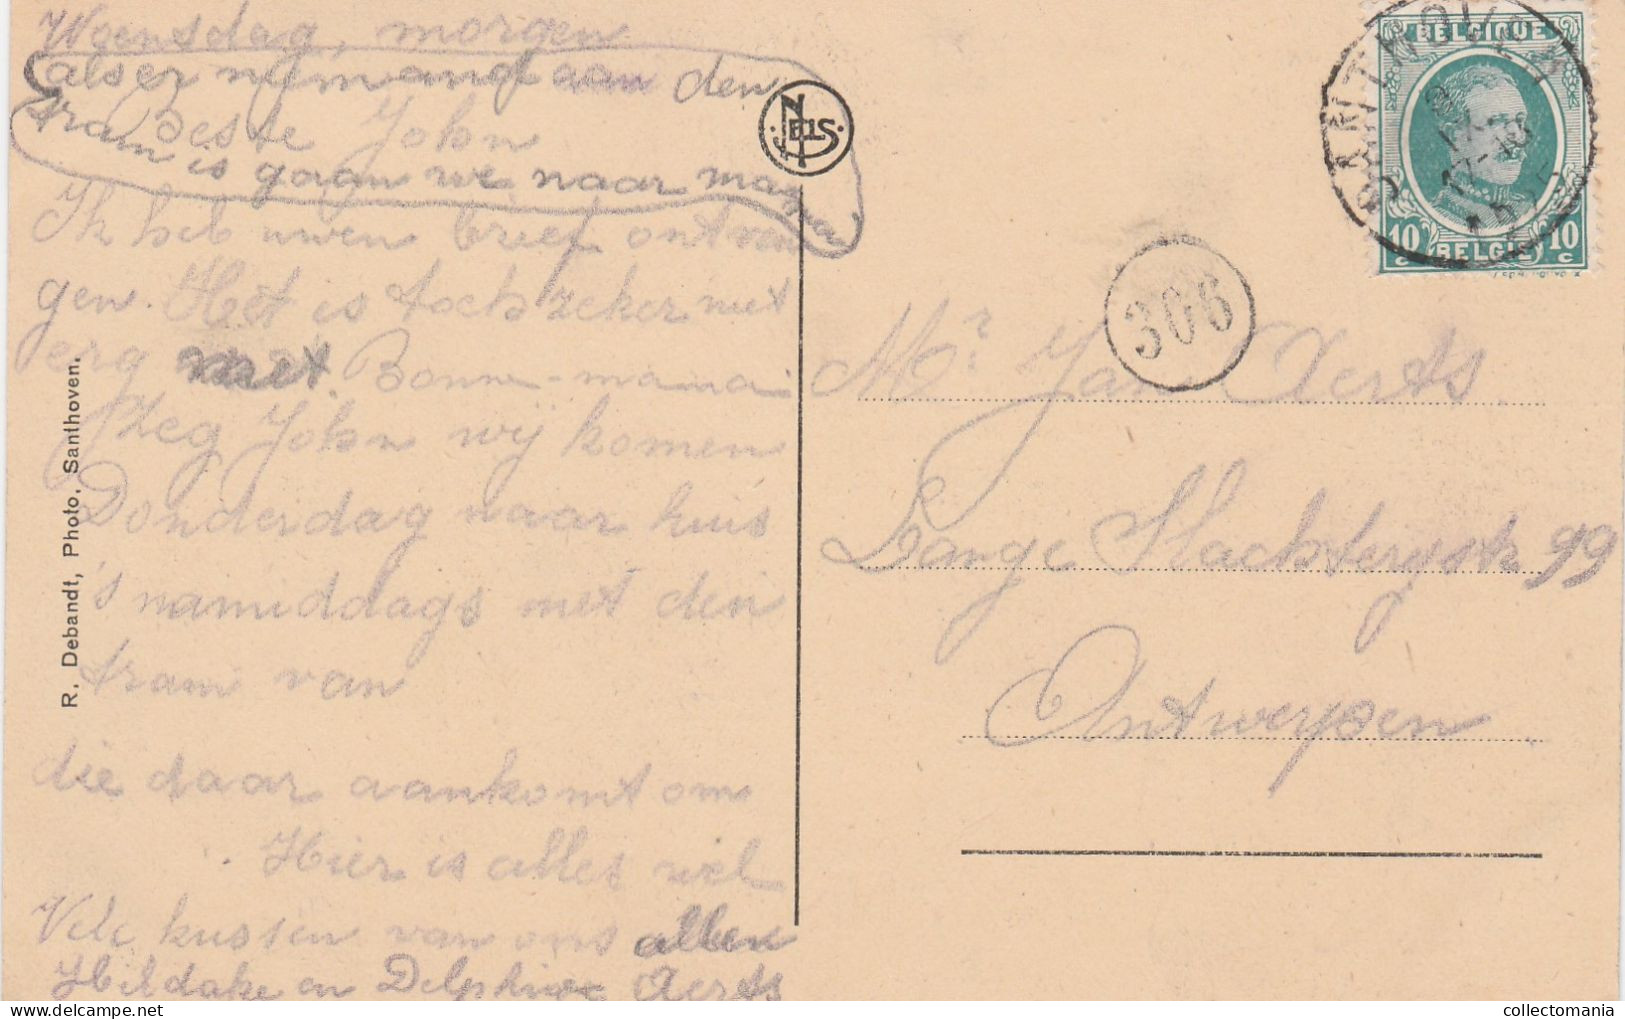 Woensdag, morgen
als er niemand aan den
tram is gaan we naar mama
Beste John
Ik heb uwen brief ontvan
gen. Het is toch zeker niet
erg met Bonne-mama.
Zeg John wij komen
Donderdag naar huis
's namiddags met den
tram van
die daar aankomt om
Hier is alles wel
Vele kussen van ons allen
en Delphine Aerts
R. Debandt, Photo, Santhoven.
NELS
BELGIQUE
10 c BELGIE 10 c
SANTHOVEN
306
Mr Jan Aerts.
Lange Slachterystr 99
Antwerpen
collectomania.com